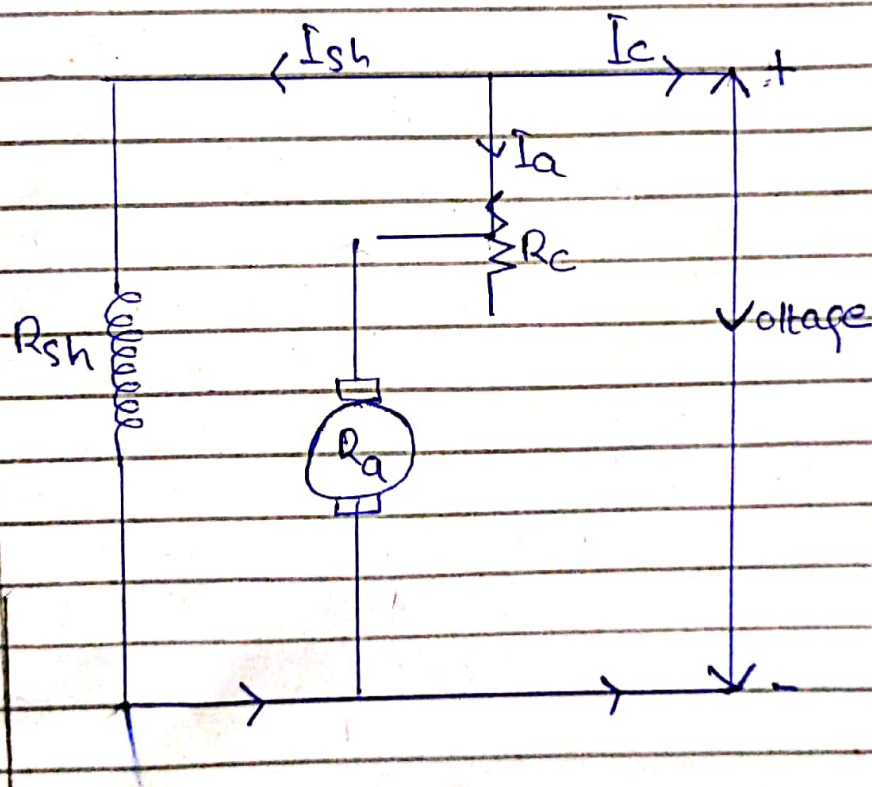 Ish
Ic
+
Ia
Rc
Rsh
Voltage
Ra
-